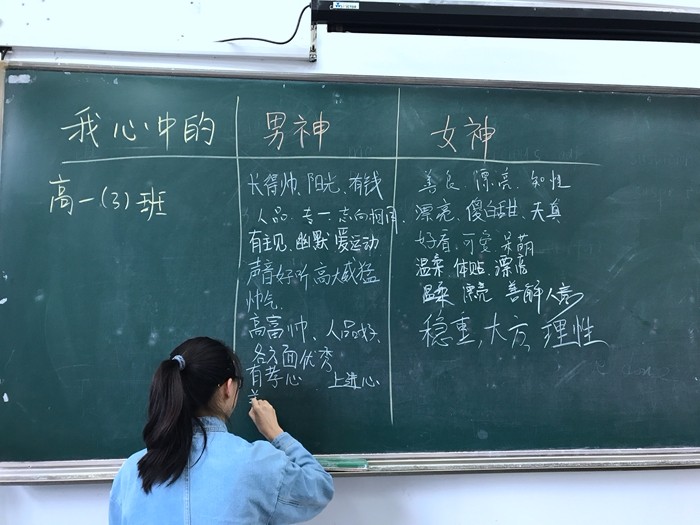 我心中的 男神 女神
高一(3)班
长得帅、阳光、有钱
人品、专一 志向相同
有主见、幽默 爱运动
声音好听 高大威猛
帅气
高富帅、人品好、
各方面优秀
有孝心 上进心
善良、漂亮、知性
漂亮、傻白甜、天真
好看、可爱、呆萌
温柔、体贴、漂亮
温柔 漂亮 善解人意
稳重,大方,理性